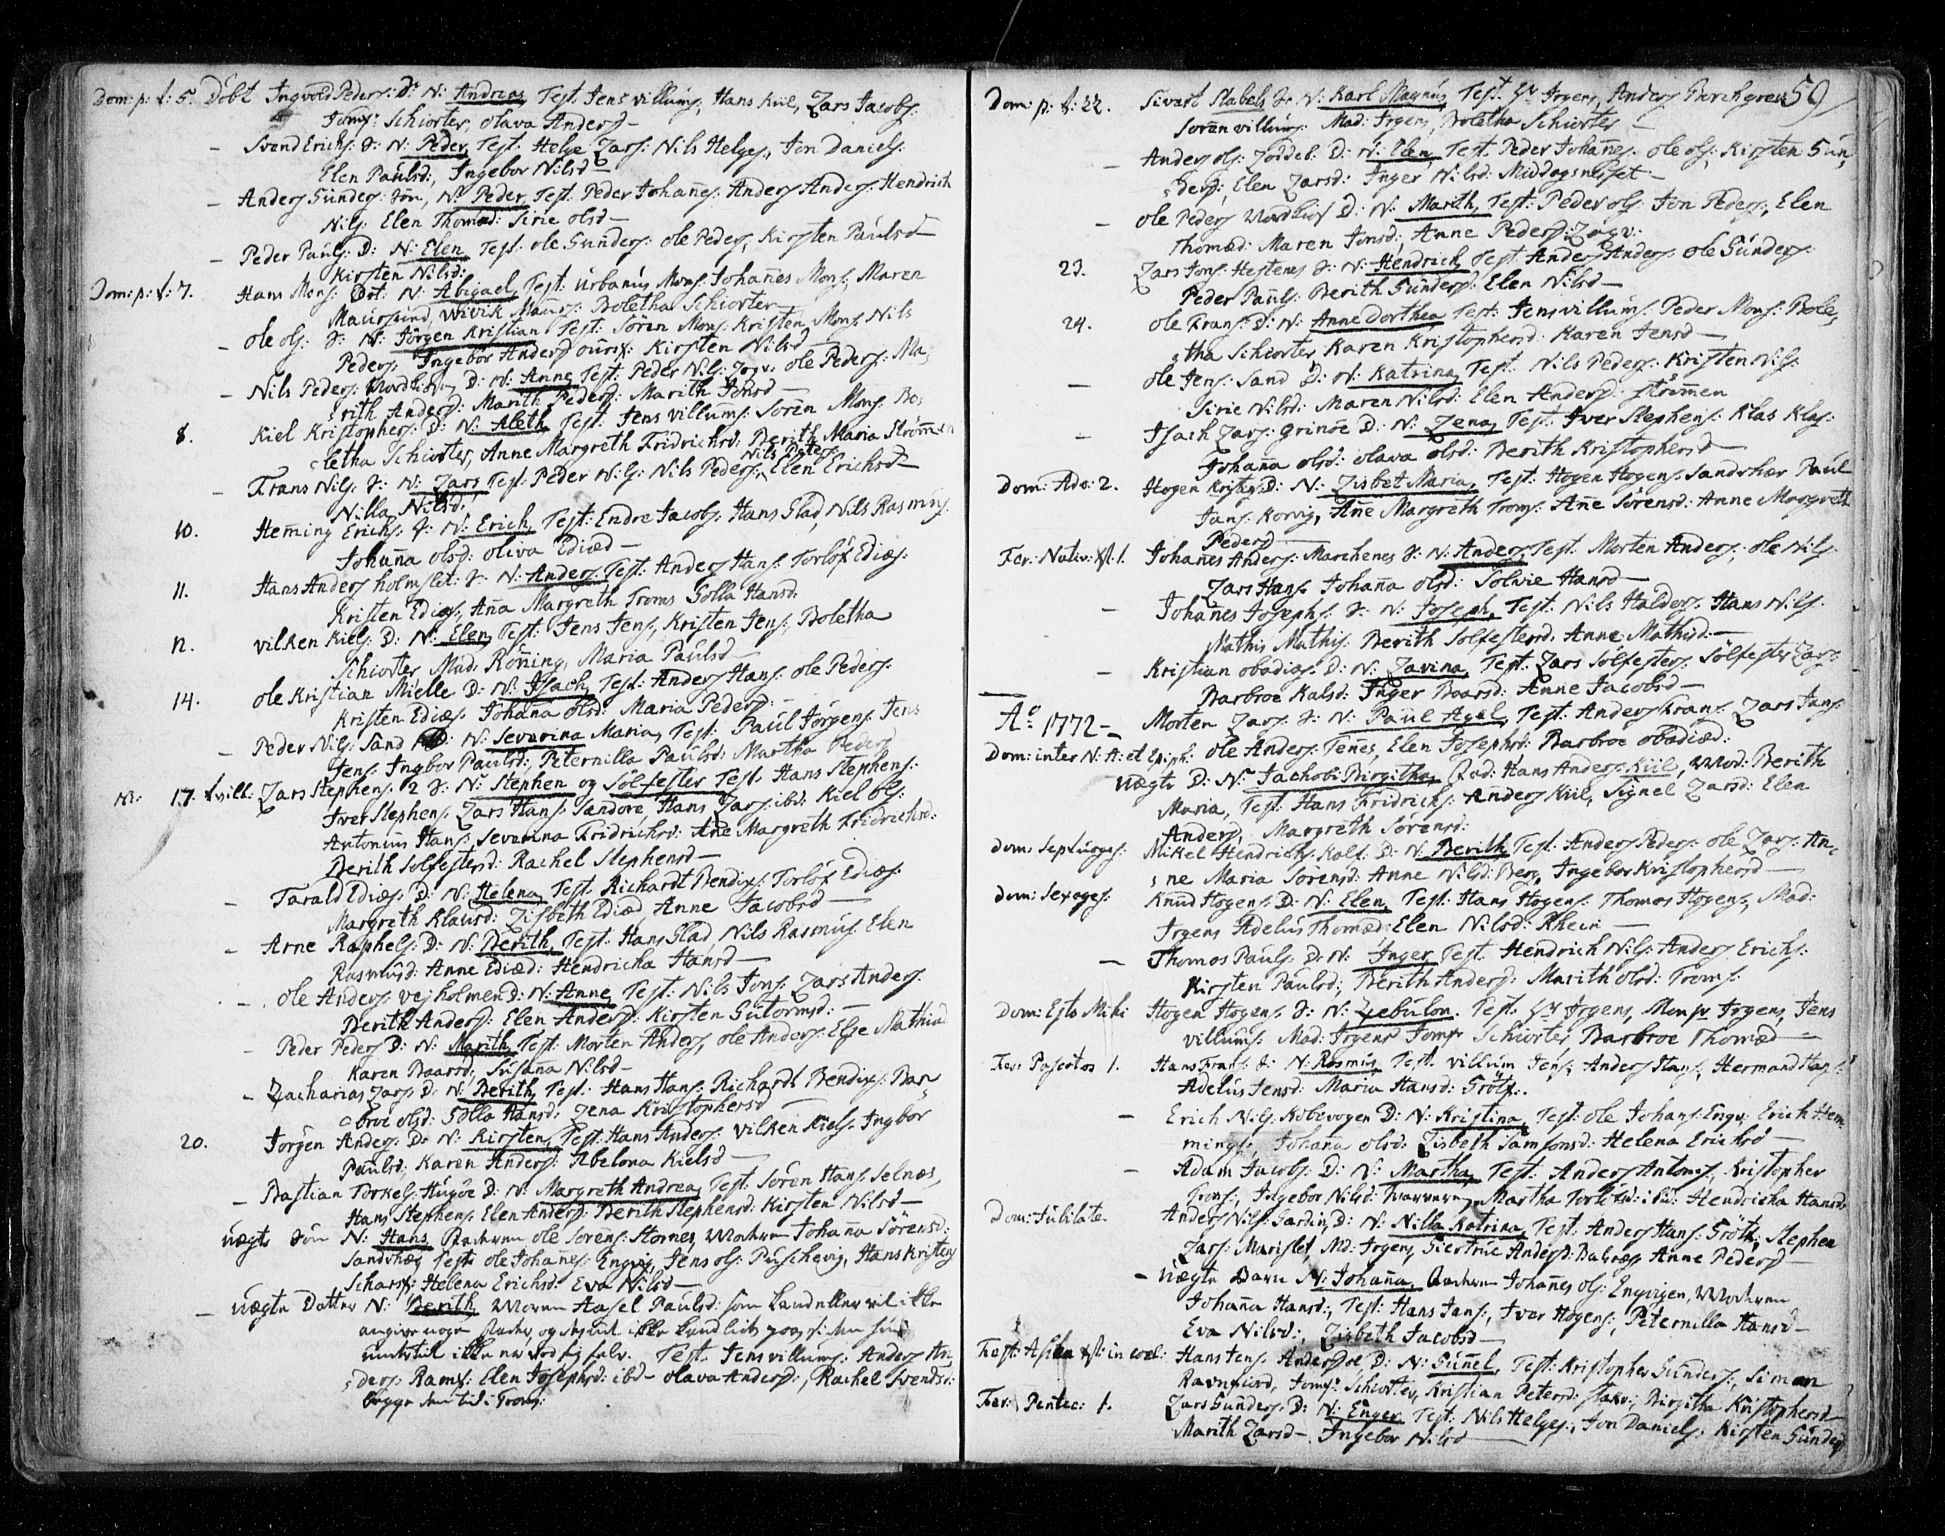 Dom: p: t: 5. Döbt Ingvold Peders: D: N: Andreas, Test. Jens Villums, Hans Kiil, Lars Jacobs:
Jomf: Schiorter, Olava Andersd—
— Svend Erichs: S: N: Peder, Test. Helge Lars: Nils Helges, Jon Daniels:
Elen Paulsd:, Ingebor Nilsd—
— Anders Gunders: Sön, N: Peder, Test. Peder Johañes: Anders Anders: Hendrich
Nils: Elen Thomæd: Sirie Olsd—
— Peder Pauls: D: N: Elen, Test. Ole Gunders: Ole Peders, Kirsten Paulsd—
Kirsten Nilsd:
Dom: p: t: 7. Hans Mons: Dot: N: Abigael, Test. Urbanus Mons: Johañes Mons, Maren
Maursund, Wivik Mauers: Boletha Schiorter—
— Ole Ols: S: N: Jörgen Kristian Test: Sören Mons: Kristen Mons, Nils
Peders, Ingebor Andersd Kirsten Nilsd—
— Nils Peders: D: N: Anne, Test: Peder Nils: Ole Peders: Ma,
rith Andersd: Marith Pedersd: Marith Jonsd—
8. Kiel Kristophers: D: N: Aleth, Test: Jens Villums: Sören Mons: Bo,
letha Schiorter, Anne Margreth Fridrichsd: Berith Maria Strömmen
— Frans Nils: S: N: Lars, Test. Peder Nils: Nils Peders, Nils Peters: Elen Erichsd—
Nilla Nilsd:
10. Heming Erichs: S: N: Erich, Test: Endre Jacobs: Hans Glad, Nils Rasmus:
Johaña Olsd: Oliva Ediæd—
11. Hans Anders Holmslet: S: N: Anders Test: Anders Hans: Torlöf Ediæs:
Kristen Ediæs, Aña Margreth Troms Golla Hansd:
12. Vilken Kiels: D: N: Elen, Test: Jens Jens, Kristen Jens, Boletha
Schiorter, Mad: Röning, Maria Paulsd—
14. Ole Kristian Mielle D: N: Isach, Test: Anders Hans: Ole Peders:
Kristen Ediæs: Johaña Olsd: Maria Pedersd:—
— Peder Nils: Sand D: N: Severina Maria, Test: Paul Jörgens: Jens
Jens: Ingbor Paulsd: Peternilla Paulsd: Martha Pedersd
NB: 17. tvill: Lars Stephens: 2 S: N: Stephen og Sölfester Test: Hans Stephens:
Iver Stephens: Lars Hans: Sandöre Hans Lars: ibd: Kiel Ols:
Antonius Hans: Severina Fridrichsd: Ane Margreth Fridrichsd:
Berith Solfestersd: Rachel Stephensd—
— Tarald Ediæs: D: N: Helena, Test. Richardt Bendixs: Torlöf Ediæs:
Margreth Klausd: Lisbeth Ediæd Anne Jacobsd—
— Arne Raphels: D: N: Berith, Test: Hans Glad, Nils Rasmus: Elen
Rasmusd: Anne Ediæd: Hendricha Hansd—
— Ole Anders: Vejholmen D: N: Anne, Test: Nils Jons: Lars Anders:
Berith Andersd: Elen Andersd: Kirsten Gutormsd:—
— Peder Peders D: N: Marith, Test: Morten Anders, Ole Anders: Else Mathiæd
Karen Baarsd: Susana Nilsd—
— Zacharias Lars: D: N: Berith, Test: Hans Hans: Richardt Bendixs: Bar,
broe Olsd: Golla Hansd: Lena Kristophersd—
20. Jörgen Anders: D: N: Kirsten, Test: Hans Anders: Vilken Kiels: Ingbor
Paulsd: Karen Andersd: Abelona Kielsd—
— Bastian Torkels: D: N: Margreth Andrea, Test. Sören Hans: Selnæs,
Hans Stephens: Elen Andersd: Berith Stephensd: Kirsten Nilsd—
Uægte Sön N: Hans, Faderen Ole Sörens: Stornes, Moderen Johaña Sörensd:
Sandshæg Test: Ole Johañes: Engvig, Jens Ols: Hans Kristens
Helena Erichsd: Eva Nilsd—
— Uægte Datter N: Berith, Moren Aasel Paulsd: som
angive nogen Fader, og
Test. Jens Villums: Anders An:
ders: Ramf: Elen Josephsd: ibd— Olava Andersd:, Rachel Svendsd:
Troms:
59
Dom: p: t: 22. Sivert Stabels S: N: Karl Magnus, Test. Hr Irgens, Anders Borchgrev
Sören Villums: Mad: Irgens, Boletha Schiorter—
— Anders Ols: D: N: Elen, Test. Peder Johañes: Ole Ols: Kirsten Gun,
dersd: Elen Larsd: Inger Nilsd: Middagsneset—
— Ole Peders D: N: Marith, Test: Peder Ols: Jon Peders, Elen
Thomæd: Maren Jonsd:, Anne Pedersd:
23. Lars Jons: Hestenes S: N: Hendrich, Test. Anders Anders: Ole Gunders:
Peder Pauls: Berith Gundersd: Elen Nilsd—
24. Ole Frans: D: N: Anne Dorthea, Test: Jens Villums: Peder Mons: Bole,
tha Schiorter, Karen Kristophersd: Karen Jensd—
— Ole Jens: Sand D: N: Katrina, Test. Nils Peders: Kristen Nils:
Sirie Nilsd: Maren Nilsd: Elen Andersd: Strömmen
— Isach Lars: Grinöe D: N: Lena, Test. Iver Stephens: Klas Klas:
Johaña Olsd: Olava Olsd: Berith Kristophersd—
Dom: Adv: 2. Hogen Kristens D: N: Lisbet Maria, Test: Hogen Hogens: Paul
Jans: Korvig, Añe Margreth Troms: Añe Sörensd: Anne Margreth
Pedersd—
Fer: Nativ: Xti 1. Johañes Anders: Marchenes S: N: Anders, Test. Morten Anders, Ole Nils:
Lars Hans: Johaña Olsd: Solvie Hansd—
— Johañes Josephs: S: N: Joseph, Test. Nils Halders: Hans Nils:
Mathis Mathis: Berith Solfestersd: Anne Mathisd:—
— Kristian Obadiæs: D: N: Lavina, Test. Lars Solfesters: Solfester Lars:
Barbroe Kalsd: Inger Baarsd: Anne Jacobsd—
Ao 1772— Morten Lars: S: N: Paul Agel, Test: Anders Frans: Lars Jans:
Dom: inter N: A: et Epiph: Ole Anders: Tenes, Elen Josephsd: Barbroe Obadiæd:
Uægte D: N: Jachobi Birgitha, Fad: Hans Anders: Kiil, Mod: Berith
Maria, Test: Hans Fridrichs: Anders Kiil, Signel Larsd: Elen
Andersd, Margreth Sörensd:
Dom: Septuages: Mikel Hendrichs: D: N: Berith, Test. Anders Peders: Ole Lars: An,
ne Maria Sörensd: Anne Nilsd: Berg, Ingebor Kristophersd—
Dom: Sexages: Knud Hogens: D: N: Elen, Test: Hans Hogens: Thomas Hogens, Mad:
Irgens Adelus Thomæd: Elen Nilsd: Rhein—
— Thomas Pauls: D: N: Inger, Test. Hendrich Nils: Anders Erichs:
Kirsten Paulsd:, Berith Andersd: Marith Olsd: Troms:
Dom: Esto Mihi Hogen Hogens: S: N: Zebulon. Test. Hr Irgens, Monsr Irgens, Jens
Villums: Mad: Irgens Jomfr Schiorter, Barbroe Thomæd—
Fer: Pascatos 1. Hans Frans: S: N: Rasmus, Test. Villum Jens: Anders Hans: Hermand Hans:
Adelus Jensd: Maria Hansd: Gröt:
— Erich Nils: Kobbevogen D: N: Kristina, Test: Ole Johans: Engv: Erich Hem,
mings: Johaña Olsd: Lisbeth Samsonsd: Helena Erichsd—
— Adam Jacobs: D: N: Martha, Test. Anders Antonis:, Kristopher
Ingebor Nilsd: Martha Torlösd: ibd: Hendricha Hansd:
Dom: Jubilate Anders Nils: D: N: Nilla Katrina, Test. Anders Hans: Gröth, Stephen
Lars: Mad: Irgens, Giertrue Andersd: Anne Pedersd—
— Uægte Barn N: Johaña, Faderen Johañes Ols: Engvigen, Moderen
Johaña Hansd:, Test: Hans Jans:, Iver Hogens:, Peternilla Hansd—
Eva Nilsd:, Lisbeth Jacobsd—
Fest: Ascen: Xti in coel: Hans Jens: D: N: Guñel, Test: Kristopher Gunders:, Simon
Ravnfiord, Jomf: Schiorter, Kristian Petersd: Birgitha Kristophersd—
Fer: Pentec: 1. Lars Gunders: D: N: Enger, Test. Nils Helges:, Jon Daniels: Kirsten Gundersd
Marith Larsd—, Ingebor Nilsd—